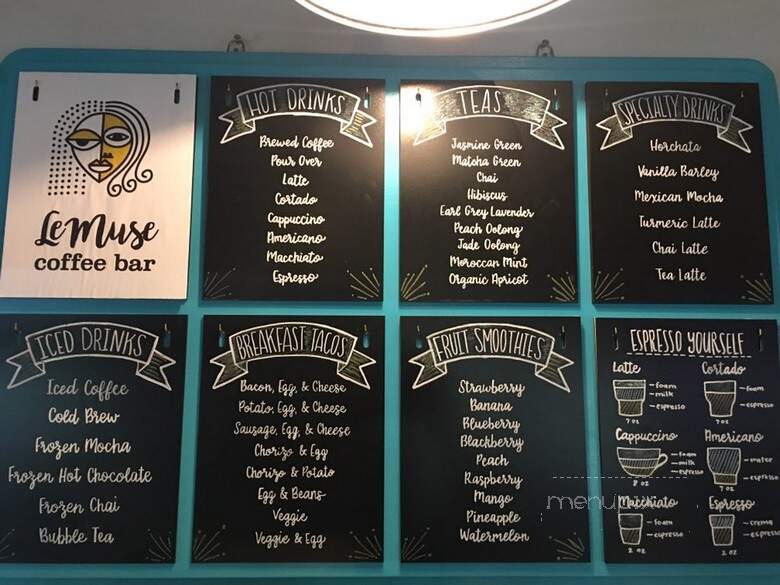 LeMuse
coffee bar
HOT DRINKS
Brewed Coffee
Pour Over
Latte
Cortado
Cappuccino
Americano
Macchiato
Espresso
TEAS
Jasmine Green
Matcha Green
Chai
Hibiscus
Earl Grey Lavender
Peach Oolong
Jade Oolong
Moroccan Mint
Organic Apricot
SPECIALTY DRINKS
Horchata
Vanilla Barley
Mexican Mocha
Turmeric Latte
Chai Latte
Tea Latte
ICED DRINKS
Iced Coffee
Cold Brew
Frozen Mocha
Frozen Hot Chocolate
Frozen Chai
Bubble Tea
BREAKFAST TACOS
Bacon, Egg, & Cheese
Potato, Egg, & Cheese
Sausage, Egg, & Cheese
Chorizo & Egg
Chorizo & Potato
Egg & Beans
Veggie
Veggie & Egg
FRUIT SMOOTHIES
Strawberry
Banana
Blueberry
Blackberry
Peach
Raspberry
Mango
Pineapple
Watermelon
ESPRESSO YOURSELF
Latte
foam
milk
espresso
7 oz
Cortado
foam
espresso
7 oz
Cappuccino
foam
milk
espresso
8 oz
Americano
water
espresso
7 oz
Macchiato
foam
espresso
2 oz
Espresso
crema
espresso
2 oz